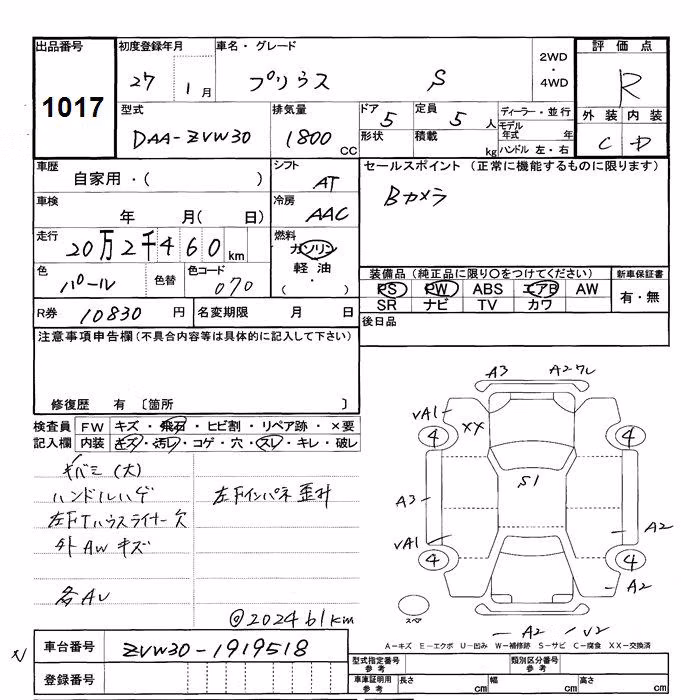 出品番号 初度登録年月 車名・グレード 2WD・4WD 評価点
1017 27 1月 プリウス S R
型式 排気量 ドア 5 定員 5人 ディーラー・並行 外装 内装
DAA-ZVW30 1800 CC 形状 積載 kg モデル年式 年 ハンドル 左・右 C D
車歴 自家用・( ) シフト AT セールスポイント (正常に機能するものに限ります)
車検 年 月( 日) 冷房 AAC Bカメラ
走行 20万2千460km 燃料 ガソリン 軽油 ( ・ )
色 パール 色替 色コード 070 装備品 (純正品に限り○をつけてください) 新車保証書
PS PW ABS エアB AW 有・無
SR ナビ TV カワ
R券 10830円 名変期限 月 日 後日品
注意事項申告欄 (不具合内容等は具体的に記入して下さい)
修復歴 有 〔箇所 〕
検査員 FW キズ・飛石・ヒビ割・リペア跡・×要
記入欄 内装 キズ・汚レ・コゲ・穴・スレ・キレ・破レ
キバミ(大)
ハンドルハゲ 左Fインパネ歪ミ
左FTハウスライナー欠
外AWキズ
各AU
@202461km
A3 A2ワレ
VA1 XX
4 4
S1
A3 A2
VA1
4 4
A2
スペア
A2 V2
A-キズ E-エクボ U-凹み W-補修跡 S-サビ C-腐食 XX-交換済
N 車台番号 ZVW30-1919518
登録番号
型式指定番号 参考 類別区分番号 参考
車庫証明用 参考 長さ cm 幅 cm 高さ cm